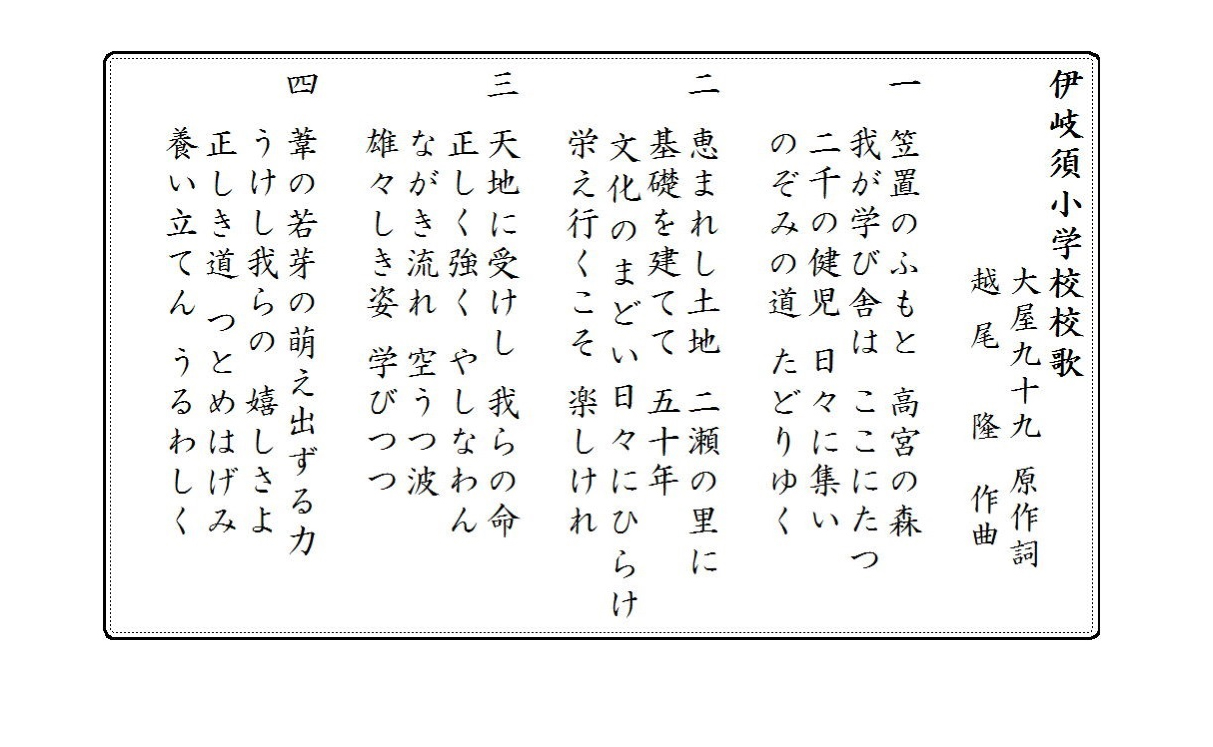 伊岐須小学校校歌
大屋九十九 原作詞
越尾 隆 作曲
一 笠置のふもと 高宮の森
我が学び舎は ここにたつ
二千の健児 日々に集い
のぞみの道 たどりゆく
二 恵まれし土地 二瀬の里に
基礎を建てて 五十年
文化のまどい 日々にひらけ
栄え行くこそ 楽しけれ
三 天地に受けし 我らの命
正しく強く やしなわん
ながき流れ 空うつ波
雄々しき姿 学びつつ
四 葦の若芽の萌え出ずる力
うけし我らの 嬉しさよ
正しき道 つとめはげみ
養い立てん うるわしく